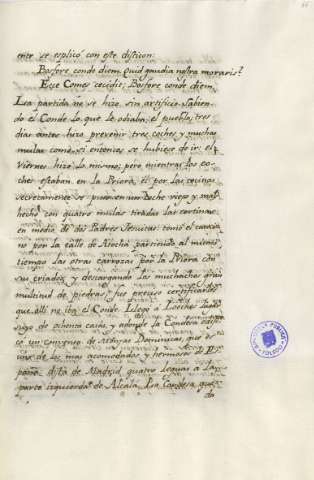 ente se esplicó con este disticon:
Bosfore conde diem, quid gaudia nostra moraris?
Ecce Comes cecidit; Bosfore conde diem,
La partida no se hizo sin artificio. Sabien-
do el Conde lo que le odiaba el pueblo, tres
dias antes hizo prevenir tres coches y muchas
mulas como si entonces se hubiese de ir: el
Viernes hizo lo mismo; pero mientras los co-
ches estaban en la Priora, el por las cocinas
secretamente se puso en un coche viejo y mal
hecho con quatro mulas tiradas las cortinas
en medio de dos Padres Jesuitas: tomó el cami-
no por la calle de Atocha partiendo al mismo
tiempo las otras carrozas por la Priora con
sus criados, y descargando los muchachos gran
multitud de piedras, fue preciso certificarles
que alli no iba el Conde. Llegó a Loeches
de ochenta casas, y adonde la Condesa
un convento de Monjas Dominicas, que
de los mas acomodados y hermosos
dista de Madrid quatro leguas a la
parte izquierda de Alcalá. La Condesa que-
da